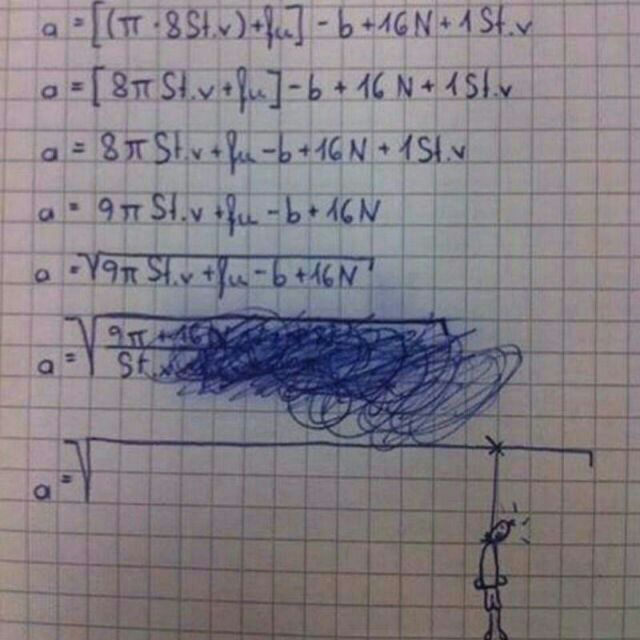 a = [(π · 8St.v) + fu] - b + 16N + 1St.v
a = [8π St.v + fu] - b + 16 N + 1St.v
a = 8π St.v + fu - b + 16N + 1St.v
a = 9π St.v + fu - b + 16N
a = √9π St.v + fu - b + 16N
a = √9π + 16N
St.v
a = √